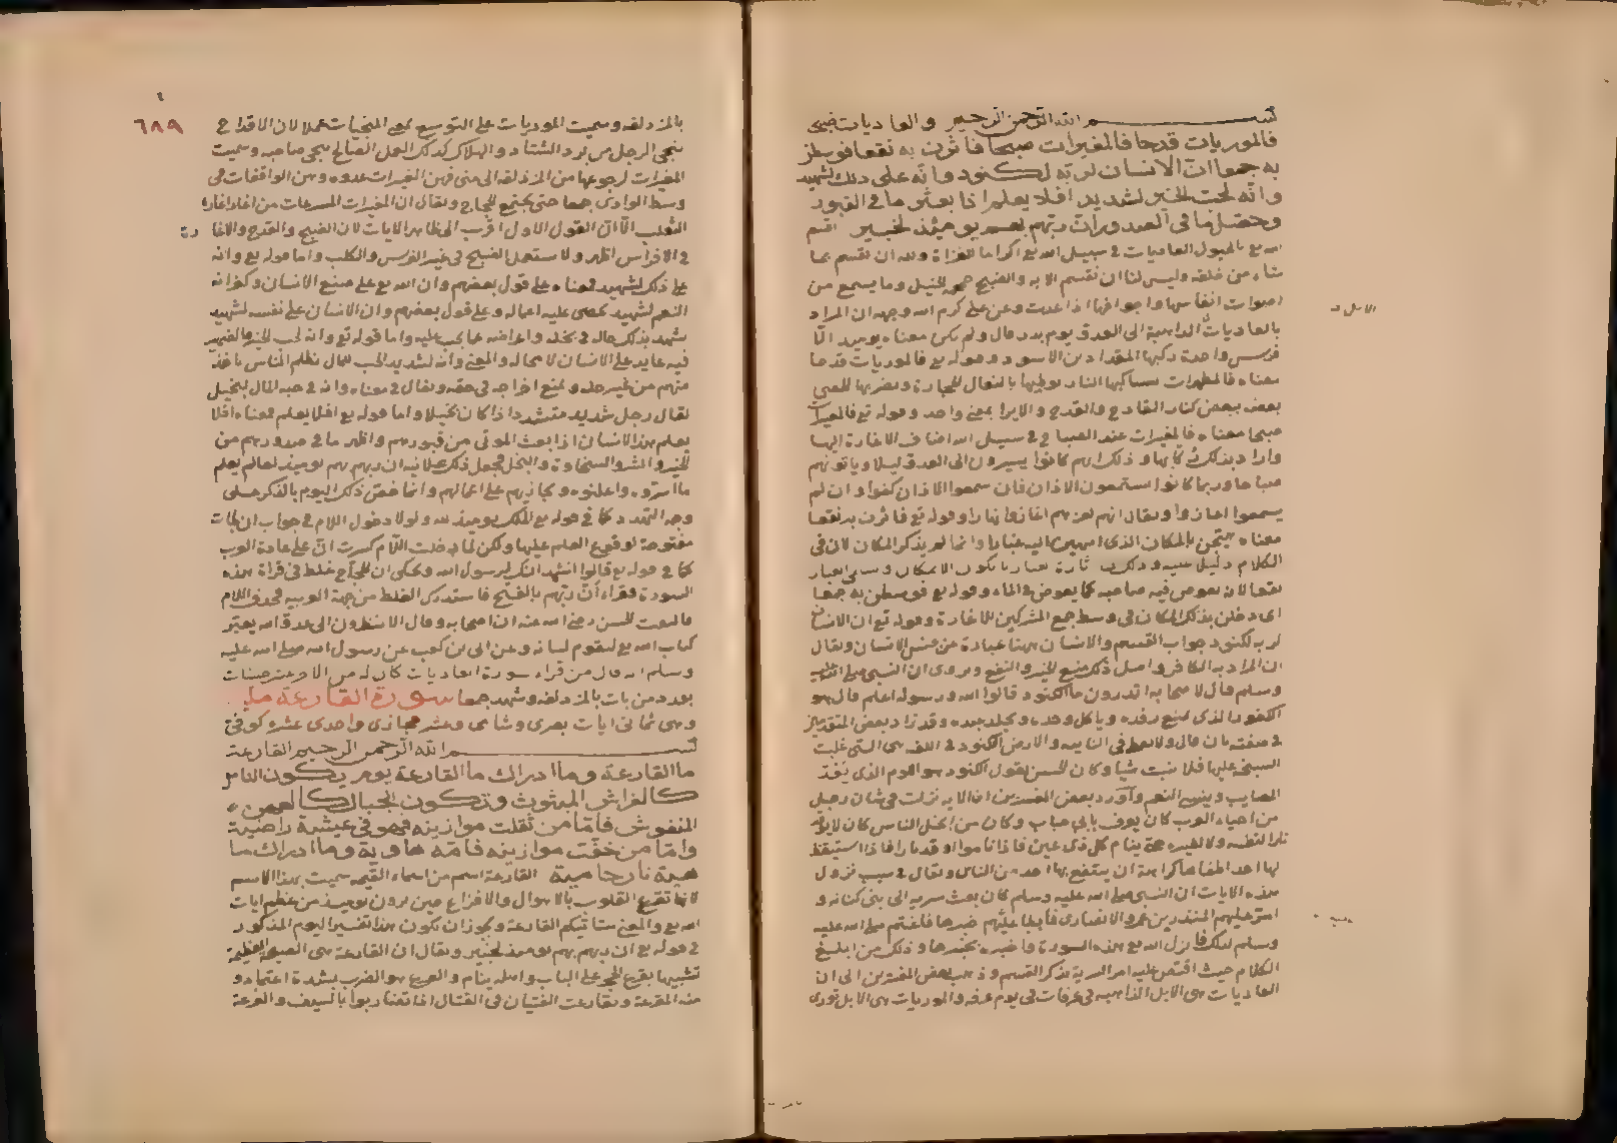 بسم الله الرحمن الرحيم والعاديات ضبحا
فالموريات قدحا فالمغيرات صبحا فاثرن به نقعا فوسطن
به جمعا ان الانسان لربه لكنود وانه على ذلك لشهيد
وانه لحب الخير لشديد افلا يعلم اذا بعثر ما في القبور
وحصل ما في الصدور ان ربهم بهم يومئذ لخبير اقسم
الله تع بالخيول العاديات في سبيل الله تع اكراما للغزاة ولله ان يقسم بما
شاء من خلقه وليس لنا ان نقسم الا به والضبح حمو الخيل وما يسمع من
اصوات انفاسها واجوافها اذا عدت وعن علي كرم الله وجهه ان المراد
بالعاديات الذاهبة الى العدو يوم بدر وقال ولم يكن معناه يومئذ الا
فرس واحدة ركبها المقداد بن الاسود وقوله تع فالموريات قدحا
معناه فالمظهرات بسنابكها النار بوطيها بالنعال للحجارة وبضربها للحصى
بعضه ببعض كنار القادح والقدح والايرا بمعنى واحد وقوله تع فالمغيرات
صبحا معناه فالمغيرات عند الصباح في سبيل الله اضاف الاغارة اليها
واراد بذلك ركابها وذلك انهم كانوا يسيرون الى العدو ليلا وياتونهم
صباحا وربما كانوا يستمعون الاذان فان سمعوا الاذان كفوا وان لم
يسمعوا اغاروا ويقال انهم لعزهم اغاروا نهارا وقوله تع فاثرن به نقعا
معناه هيجن بالمكان الذي انتهين اليه غبارا وانما لم يذكر المكان لان في
الكلام دليل عليه وذلك اثارة الغبار يكون الا بمكان وسمى الغبار
نقعا لانه يغوص فيه صاحبه كما يغوص في الماء وقوله تع فوسطن به جمعا
اى دخلن بذلك المكان في وسط جمع المشركين للاغارة وقوله تع ان الانسان
لربه لكنود جواب القسم والانسان ههنا عبادة عن جنس الانسان ويقال
ان المراد به الكافر واصل ذكر منع الخير والنفع ويروى ان النبي صلى الله عليه
وسلم قال لاصحابه اتدرون ما الكنود قالوا الله ورسوله اعلم قال هو
الكفور الذى يمنع رفده وياكل وحده ويجلد عبده وقد زاد بعض المتقدمين
في صفته بان قال ولا يعط في النايبه والارض الكنود في اللغه هى التى غلبت
السبخ عليها فلا تنبت شيا وكان الحسن يقول الكنود هو اللوم الذى يعد
المصايب وينسى النعم واورد بعض المفسرين ان الايه نزلت في شان رجل
من احياء العرب كان يعرف بابي حباب وكان من ابخل الناس كان لا يوقد
نارا لنفسه ولا لغيره حتى ينام كل ذى عين فاذا ناموا اوقد نارا فاذا استيقظ
لها احد اطفاها كراهة ان ينتفع بها احد من الناس ويقال في سبب نزول
هذه الايات ان النبي صلى الله عليه وسلم كان بعث سرية الى بني كنانه و
امر عليهم المنذر بن عمرو الانصارى فابطا عليهم خبرها فاغتم صلى الله عليه
وسلم لذلك فانزل الله تع هذه السورة واخبره بخبرها وذلك من ابلغ
الكلام حيث اقتص عليه امر السرية بذكر القسم وذهب بعض المفسرين الى ان
العاديات هى الابل الذاهبه في عرفات في يوم عرفه والموريات هى الابل تورى
٦٨٩
بالمزدلفه وسميت الموريات على التوسع بمعنى المنجيات عملا لان الاقداح
ينجي الرجل من برد الشتاء والهلاك كذلك العمل الصالح ينجي صاحبه وسميت
المغيرات لرجوعها من المزدلفه الى منى فهن المغيرات عدوه وهن الواقفات في
وسط الوادى جمعا حتى يجتمع الحجاج ويقال ان المغيرات المسرعات من اغار اغارة
الثعلب الا ان القول الاول اقرب الى ظاهر الايات لان الضبح والقدح والاغارة
في الافراس اظهر ولا يستعمل الضبح في غير الفرس والكلب واما قوله تع وانه
على ذلك لشهيد معناه على قول بعضهم وان الله تع على صنع الانسان وكفرانه
النعم لشهيد يحصى عليه اعماله وعلى قول بعضهم وان الانسان على نفسه لشهيد
يشهد بذلك حاله في بخله واعراضه عما يجب عليه واما قوله تع وانه لحب الخير فالضمير
فيه عايد على الانسان لا محاله والمعنى وانه لشديد الحب للمال يظلم الناس ياخذ
منهم من غير حله ويمنع اخراجه في حقه ويقال في معناه وانه في حبه المال لبخيل
يقال رجل شديد متشدد اذا كان بخيلا واما قوله تع افلا يعلم معناه افلا
يعلم هذا الانسان اذا بعث الموتى من قبورهم واظهر ما في صدورهم من
الخير والشر والسخاوة والبخل فجعل ذلك علانيه ان ربهم بهم يومئذ لعالم يعلم
ما اسروه واعلنوه ويجازيهم على اعمالهم وانما خص ذلك اليوم بالذكر على
وجه التهدد كما في قوله تع الملك يومئذ لله ولولا دخول اللام في جواب ان لجات
مفتوحة لوقوع العلم عليها ولكن لما دخلت اللام كسرت ان على عادة العرب
كما في قوله تع قالوا نشهد انك لرسول الله ويحكى ان الحجاج غلط في قراة هذه
السورة فقراء ان ربهم بالفتح فاستدرك الغلط من جهة العربيه فحذف اللام
فالتفت الحسن رضي الله عنه الى اصحابه وقال الا تنظرون الى عدو الله يغير
كتاب الله تع لتقويم لسانه وعن ابي بن كعب عن رسول الله صلى الله عليه
وسلم انه قال من قراء سورة العاديات كان له من الاجر عشر حسنات
بعدد من بات بالمزدلفه وشهد جمعا سورة القارعة مكية
وهى ثماني ايات بصرى وشامى وعشر حجازى واحدى عشره كوفي
بسم الله الرحمن الرحيم القارعة
ما القارعة وما ادراك ما القارعة يوم يكون الناس
كالفراش المبثوث وتكون الجبال كالعهن
المنفوش فاما من ثقلت موازينه فهو في عيشة راضية
واما من خفت موازينه فامه هاوية وما ادراك ما
هيه نار حامية القارعة اسم من اسماء القيمه سميت بهذا الاسم
لانها تقرع القلوب بالاهوال والافزاع حين يرون يومئذ من عظم ايات
الله تع والمعنى ستاتيكم القارعة ويجوز ان يكون هذا تفسير اليوم المذكور
في قوله تع ان ربهم بهم يومئذ لخبير ويقال ان القارعة هى الصيحة العظيمة
تشبيها بقرع الحجر على الباب واصله بنام والقرع هو الضرب بشدة اعتماد و
منه المقرعة وتقارعت الفتيان في القتال اذا تضاربوا بالسيف والقرعة